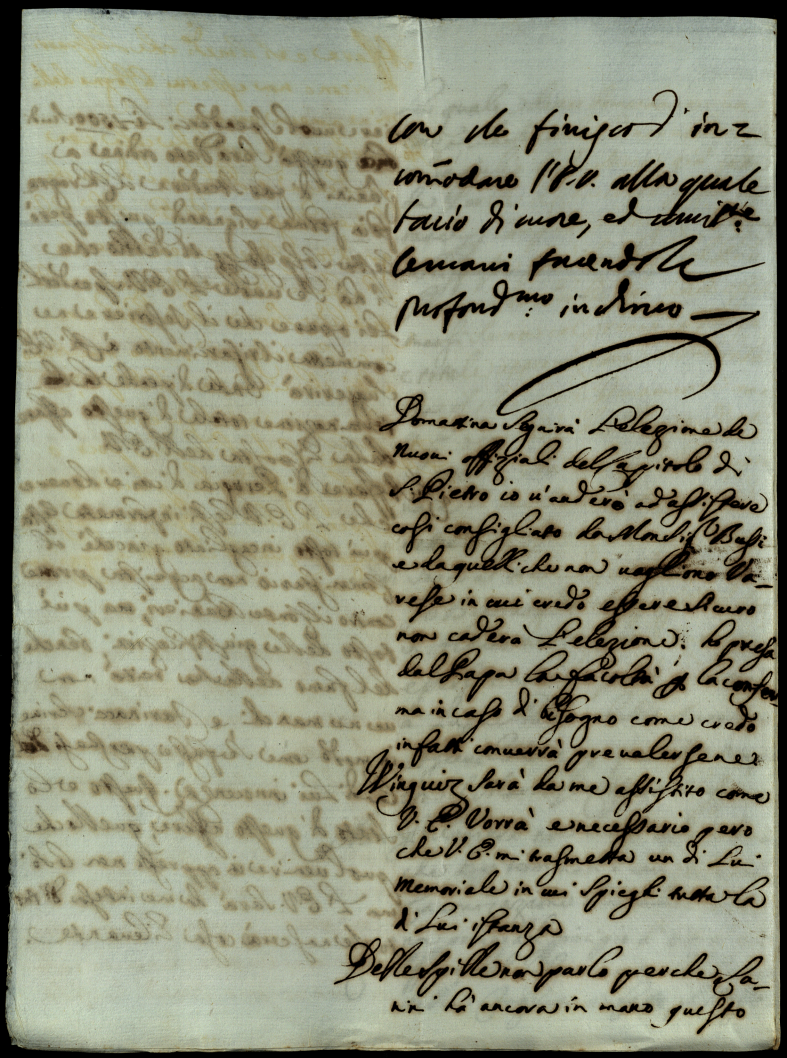 con che finisco d'in=
comodare l'E.V. alla quale
bacio di cuore, ed
le mani facendole
profond.mo inchino
Domattina Seguirà L'elezione de
nuovi offiziali del Capitolo di
S. Pietro io v'anderò ad assistere
cosi consigliato da Monsig.r Bussi
e da quelli che non vogliono Va=
rese in cui credo essere sicuro
non caderà L'elezione. ho presa
dal Papa la facoltà p la confer=
ma in caso di bisogno come credo
infatti converrà prevalersene
Winquiz sarà da me assistito come
V. E. Vorrà e necessario pero
che V. E. mi trasmetta un di Lui
Memoriale in cui Spieghi tutta la
di Lui istanza
Delle Spille non parlo perche
hà ancora in mano questo